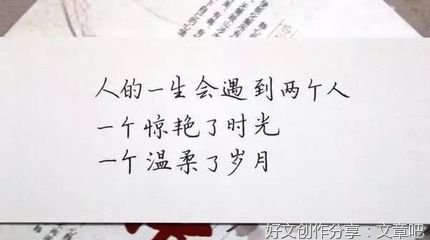 人的一生会遇到两个人
一个惊艳了时光
一个温柔了岁月
好文创作分享：文章吧